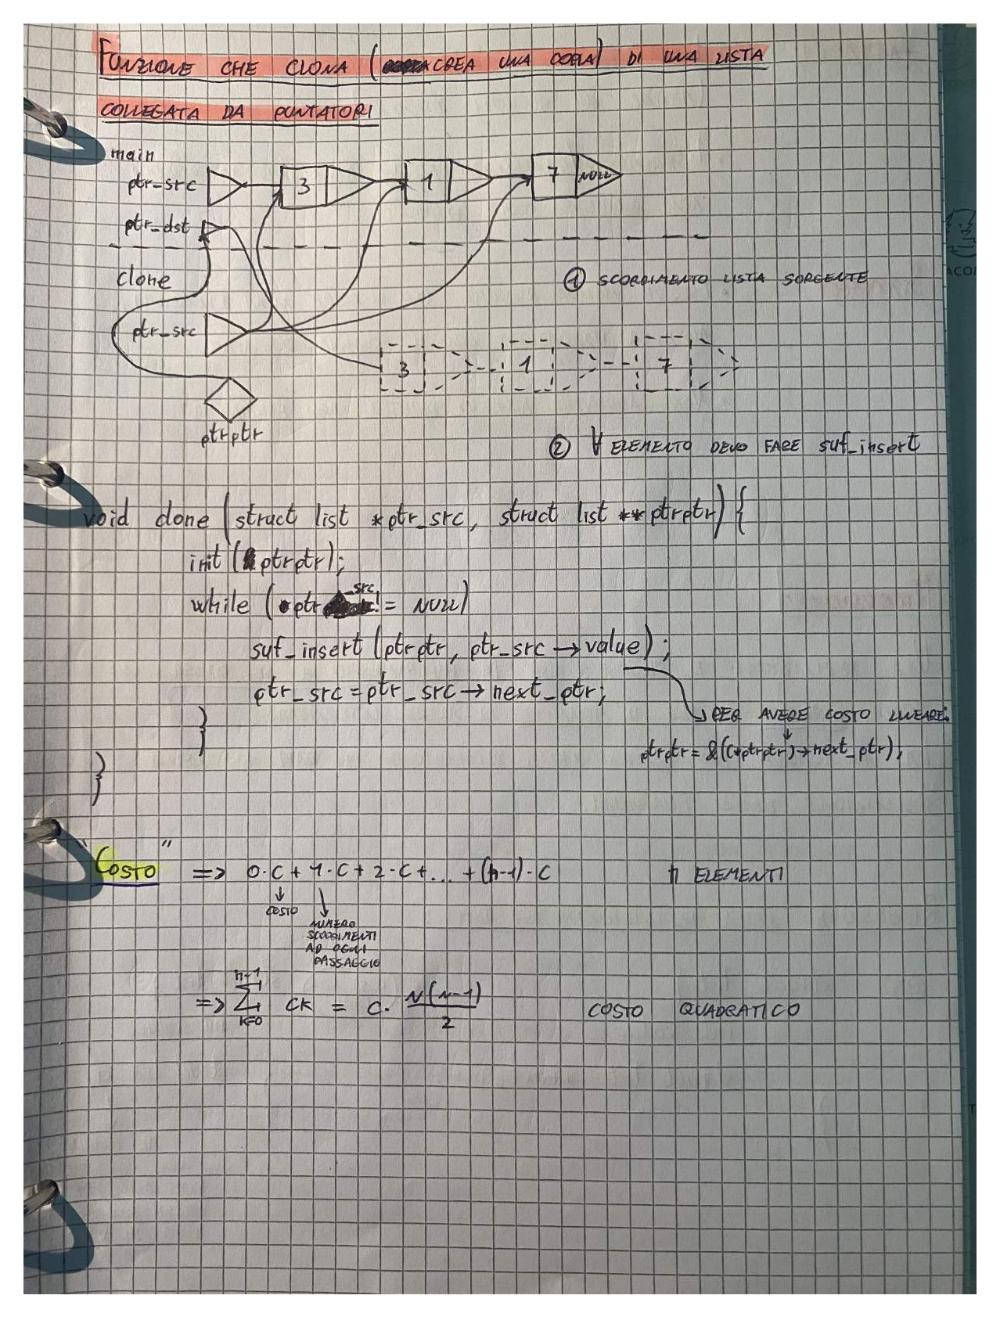 FUNZIONE CHE CLONA (CREA UNA COPIA) DI UNA LISTA
COLLEGATA DA PUNTATORI
main
ptr_src 3 1 7 NULL
ptr_dst
clone
① SCORRIMENTO LISTA SORGENTE
ptr_src
3 1 7
ptrptr
② ∀ ELEMENTO DEVO FARE suf_insert
void clone (struct list *ptr_src, struct list **ptrptr) {
init (ptrptr);
while (ptr_src != NULL)
suf_insert (ptrptr, ptr_src → value);
ptr_src = ptr_src → next_ptr;
PER AVERE COSTO LINEARE:
}
ptrptr = &((*ptrptr) → next_ptr);
}
"COSTO" => 0·C + 1·C + 2·C + ... + (n-1)·C n ELEMENTI
COSTO
NUMERO
SCORRIMENTI
AD OGNI
PASSAGGIO
n-1
=> Σ CK = C· N(N-1)
K=0 2
COSTO QUADRATICO